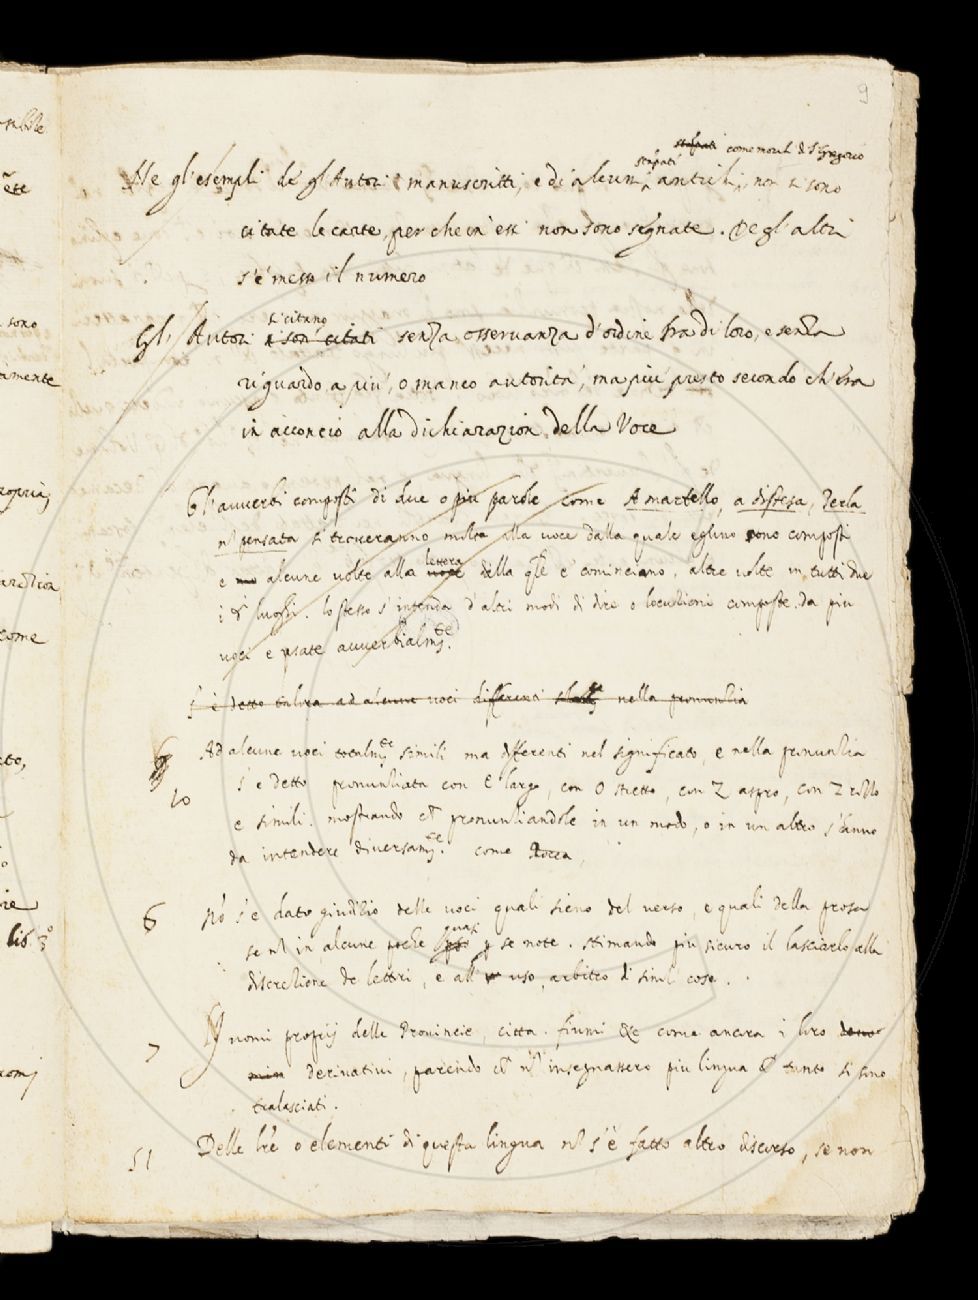 9
stampati come moral. di S. Gregorio
stāpati
Ne gl'esempli de gl'Autori manuscritti, e di alcuni antichi, non si sono
citate le carte, perche in essi non sono segnate. Degl'altri
s'è messo il numero
si citano
Gl'Autori si son citati senza osseruanza d'ordine fra di loro, e senza
riguardo a piu, o manco autorità, ma piu presto secondo ch'era
in acconcio alla dichiarazion della Voce
Gl'auuerbi composti di due o piu parole come A martello, a distesa, Per la
nō pensata si troueranno molte alla voce dalla quale eglino sono composti
lettera
e alcune volte alla voce della qle e cominciano, altre volte in tutti due
i luoghi. lo stesso s'intenda d'altri modi di dire o locuzioni composte da piu
voci e usate auuerbialmte.
S'è detto talora ad alcune voci differenti nella pronunzia
Ad alcune voci totalmte simili ma differenti nel significato, e nella pronunzia
10
s'è detto pronunziata con E largo, con O stretto, con Z aspro, con Z rozzo
e simili. mostrando ch pronunziandole in un modo, o in un altro s'hanno
da intendere diuersamte. come Rocca,
6
Nō s'è dato giudizio delle uoci quali sieno del verso, e quali della prosa
quasi
se nō in alcune poche p se note. stimando piu sicuro il lasciarlo alla
discrezione de lettori, e all' uso, arbitro di simil cose.
7
Nomi proprij delle Prouincie, citta. fiumi &c come ancora i loro deno
min deriuatiui, parendo ch nō insegnassero piu lingua p tanto si sono
tralasciati.
51
Delle lre o elementi di questa lingua nō s'è fatto altro discorso, se non